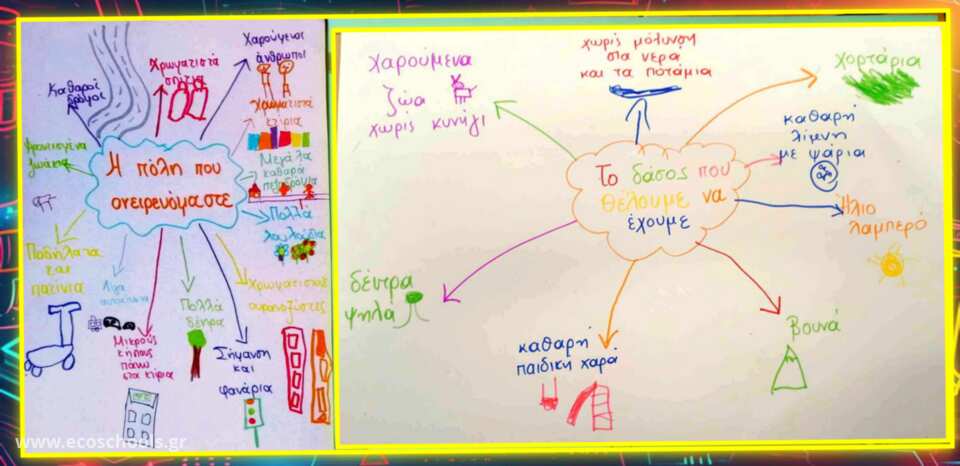 Η πόλη που
ονειρευόμαστε
Καθαροί
δρόμοι
Χρωματιστά
σπίτια
Χαρούμενοι
άνθρωποι
Χρωματιστά
κτίρια
Μεγάλα
καθαρά
πεζοδρόμια
Πολλά
λουλούδια
Χρωματιστούς
ουρανοξύστες
Σήμανση
και
φανάρια
Πολλά
δέντρα
Μικρούς
κήπους
πάνω
στα κτίρια
Λίγα
αυτοκίνητα
Ποδήλατα
και
πατίνια
ζωάκια
Το δάσος που
θέλουμε να
έχουμε
Χαρούμενα
ζώα
χωρίς κυνήγι
χωρίς μόλυνση
στα νερά
και τα ποτάμια
χορτάρια
καθαρή
λίμνη
με ψάρια
Ήλιο
λαμπερό
βουνά
καθαρή
παιδική χαρά
δέντρα
ψηλά
www.ecoschools.gr